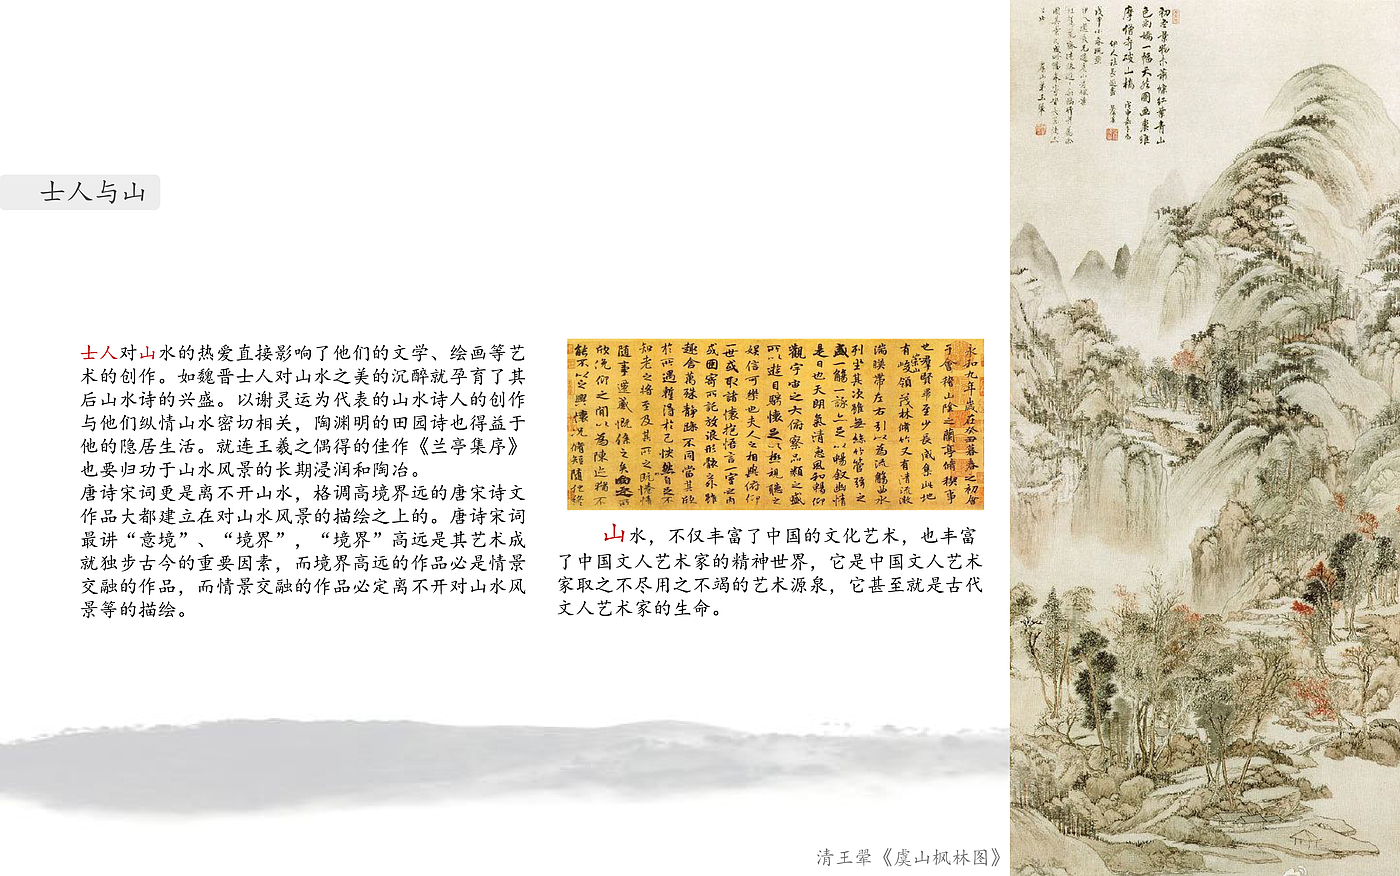 士人与山
士人对山水的热爱直接影响了他们的文学、绘画等艺
术的创作。如魏晋士人对山水之美的沉醉就孕育了其
后山水诗的兴盛。以谢灵运为代表的山水诗人的创作
与他们纵情山水密切相关，陶渊明的田园诗也得益于
他的隐居生活。就连王羲之偶得的佳作《兰亭集序》
也要归功于山水风景的长期浸润和陶冶。
唐诗宋词更是离不开山水，格调高境界远的唐宋诗文
作品大都建立在对山水风景的描绘之上的。唐诗宋词
最讲“意境”、“境界”，“境界”高远是其艺术成
就独步古今的重要因素，而境界高远的作品必是情景
交融的作品，而情景交融的作品必定离不开对山水风
景等的描绘。
永和九年歲在癸丑暮春之初會
于會稽山陰之蘭亭脩稧事
也羣賢畢至少長咸集此地
有崇山峻領茂林脩竹又有清流激
湍暎帶左右引以為流觴曲水
列坐其次雖無絲竹管弦之
盛一觴一詠亦足以暢叙幽情
是日也天朗氣清惠風和暢仰
觀宇宙之大俯察品類之盛
所以遊目騁懷足以極視聽之
娛信可樂也夫人之相與俯仰
一世或取諸懷抱悟言一室之內
或因寄所託放浪形骸之外雖
趣舍萬殊靜躁不同當其欣
於所遇蹔得於己快然自足不
知老之將至及其所之既惓情
隨事遷感慨係之矣向之所
欣俛仰之間以為陳迹猶不
能不以之興懷況脩短隨化終
山水，不仅丰富了中国的文化艺术，也丰富
了中国文人艺术家的精神世界，它是中国文人艺术
家取之不尽用之不竭的艺术源泉，它甚至就是古代
文人艺术家的生命。
清王翚《虞山枫林图》